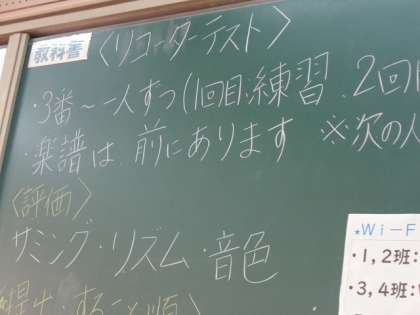 教科書
〈リコーダーテスト〉
・3番～一人ずつ(1回目:練習、2回
・楽譜は、前にあります ※次の人
〈評価〉
サミング・リズム・音色
★Wi-F
・1,2班:
・3,4班: